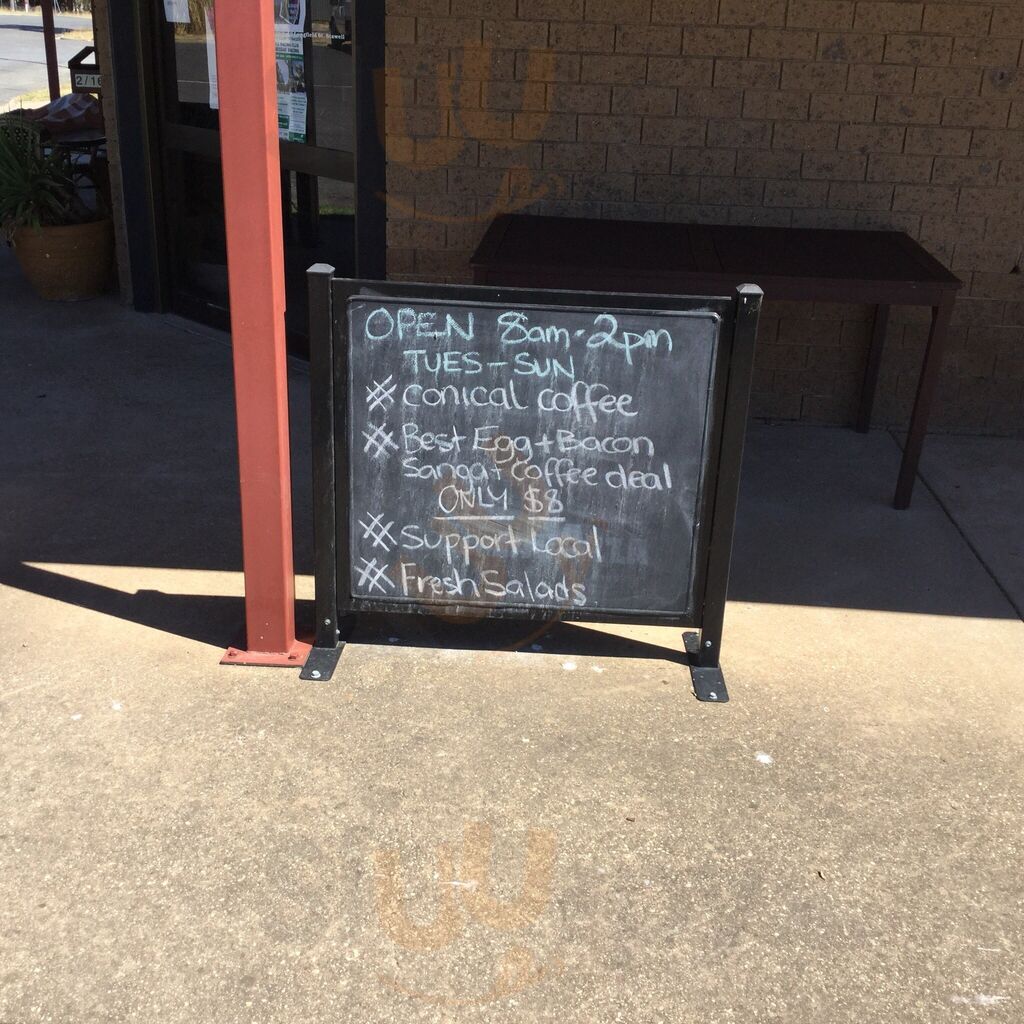 OPEN 8am-2pm
TUES-SUN
# Conical coffee
# Best Egg + Bacon
Sanga + Coffee deal
ONLY $8
# Support Local
# Fresh Salads
2/16
Longfield St, Stawell